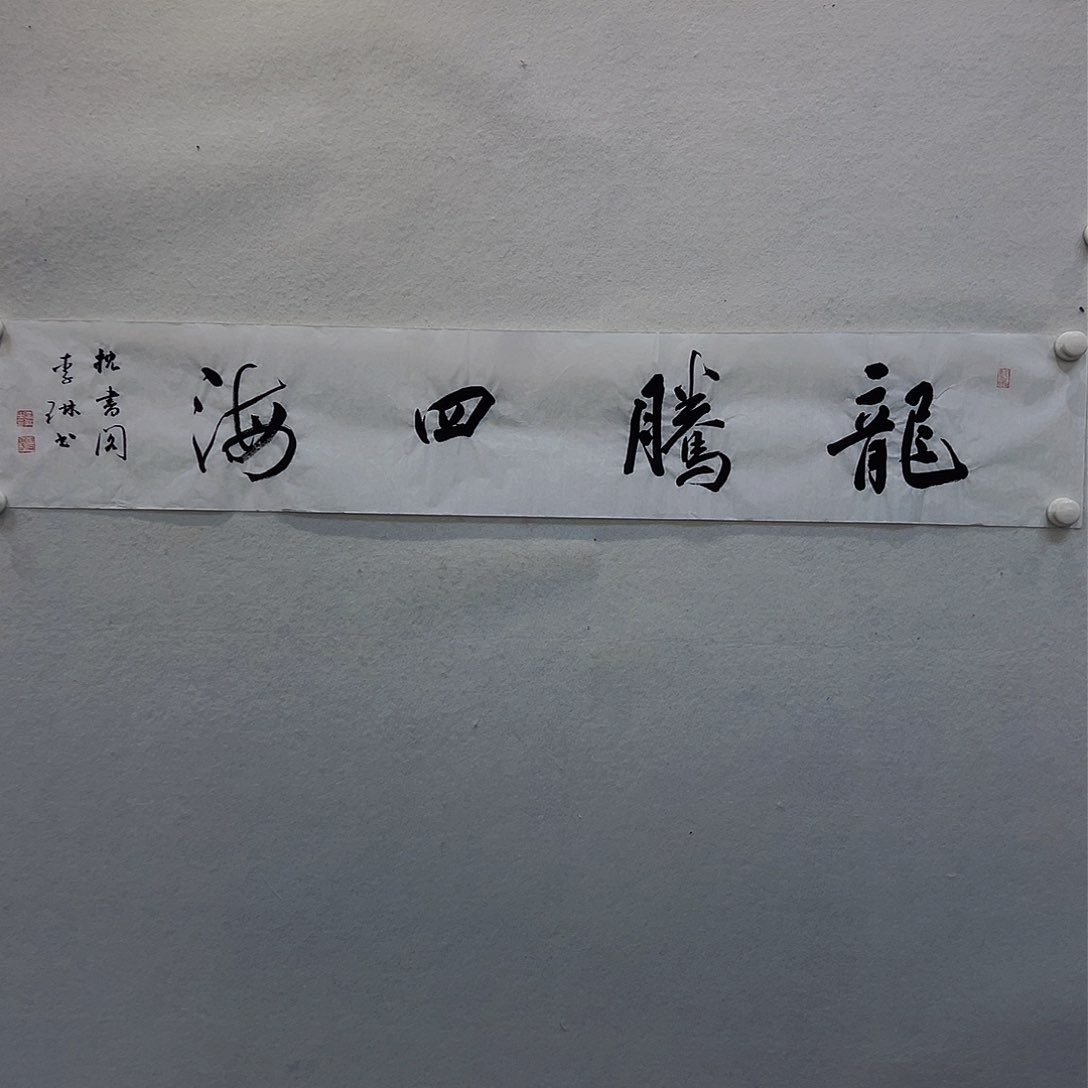 龍騰四海
枕書閣
李琳书